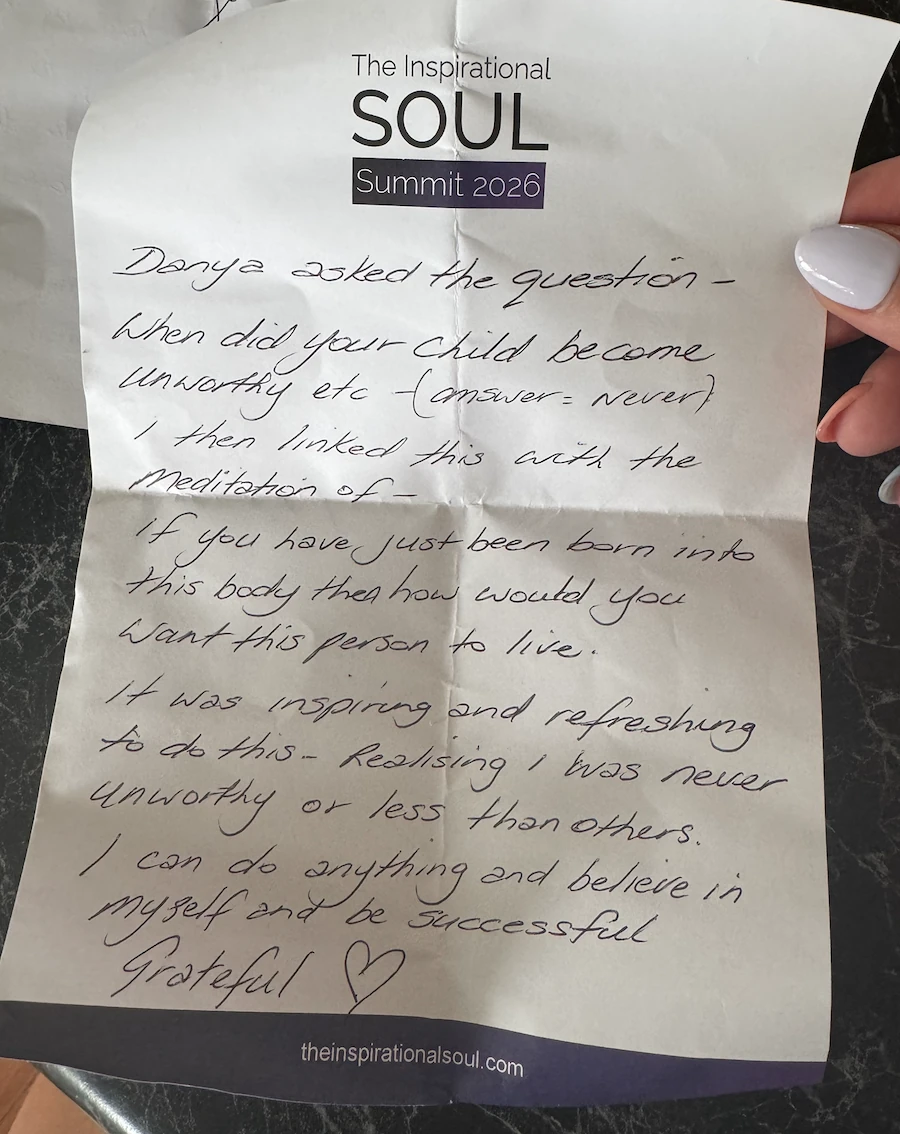 The Inspirational
SOUL
Summit 2026
Danya asked the question -
When did your child become
unworthy etc - (answer = Never)
I then linked this with the
Meditation of -
If you have just been born into
this body then how would you
want this person to live.
It was inspiring and refreshing
to do this - Realising I was never
unworthy or less than others.
I can do anything and believe in
myself and be successful
Grateful ♡
theinspirationalsoul.com